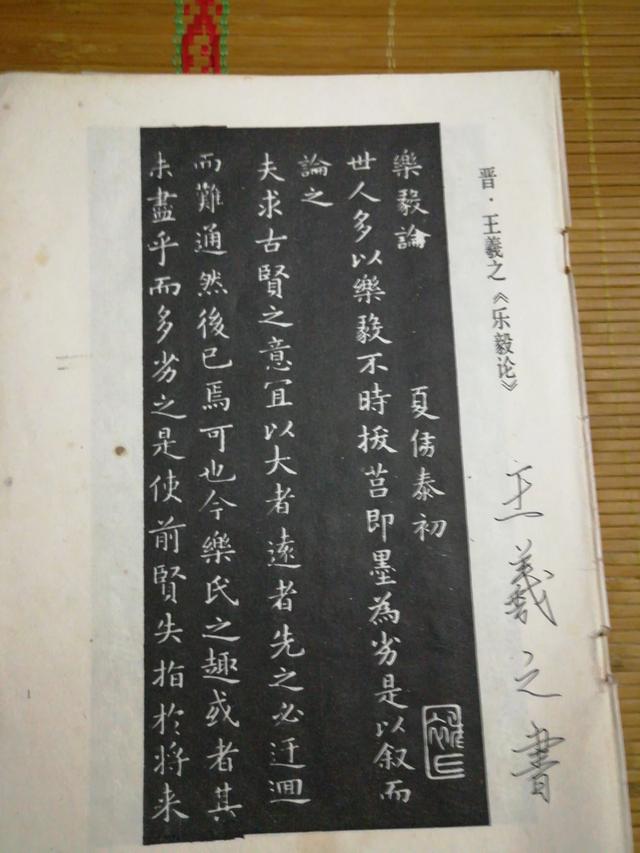 晋·王羲之《乐毅论》
王羲之書
樂毅論
夏侯泰初
世人多以樂毅不時拔莒即墨為劣是以叙而
論之
夫求古賢之意宜以大者遠者先之必迂迴
而難通然後已焉可也今樂氏之趣或者其
未盡乎而多劣之是使前賢失指於将来